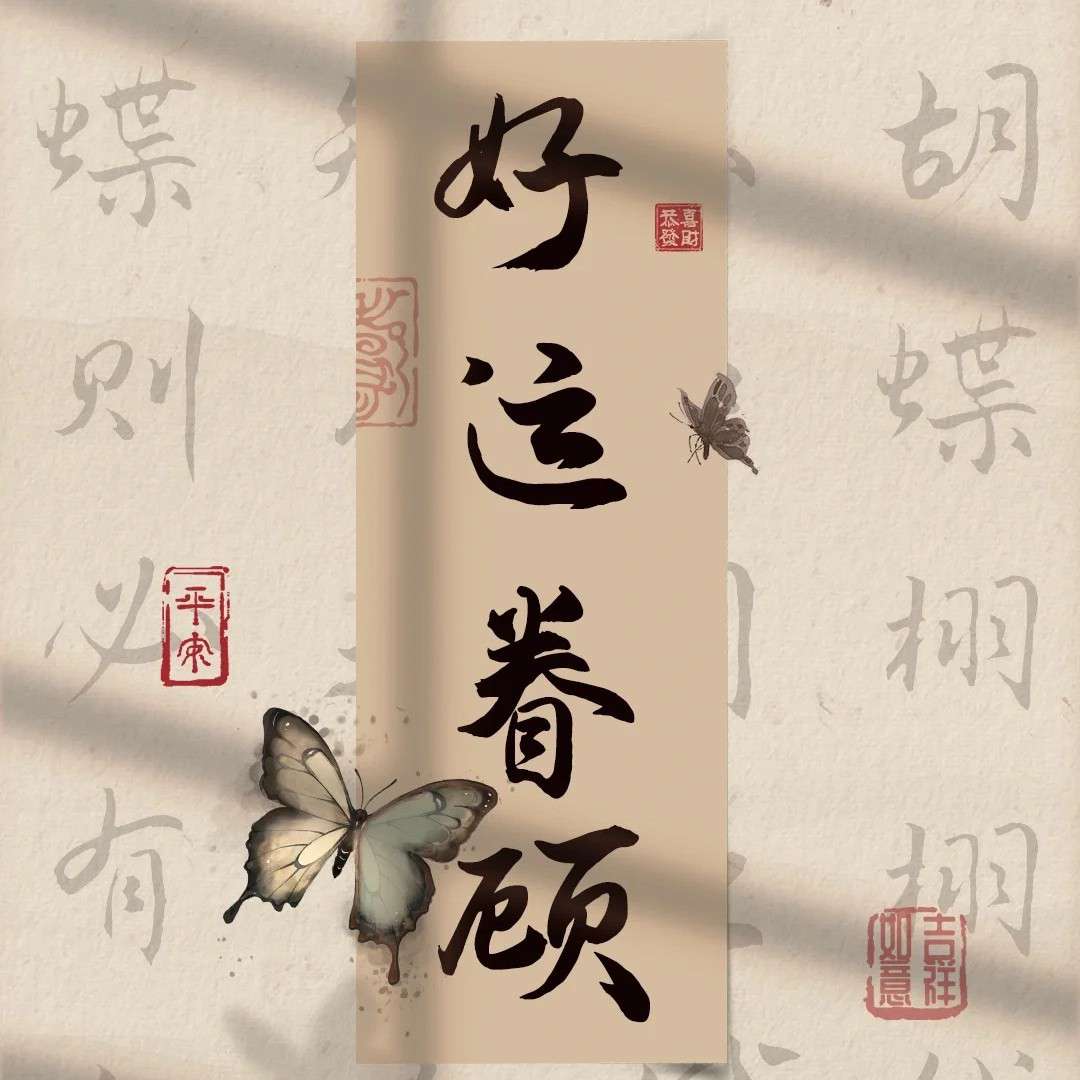 好运眷顾
恭喜發財
平安
吉祥如意
胡蝶栩栩
蝶則必有